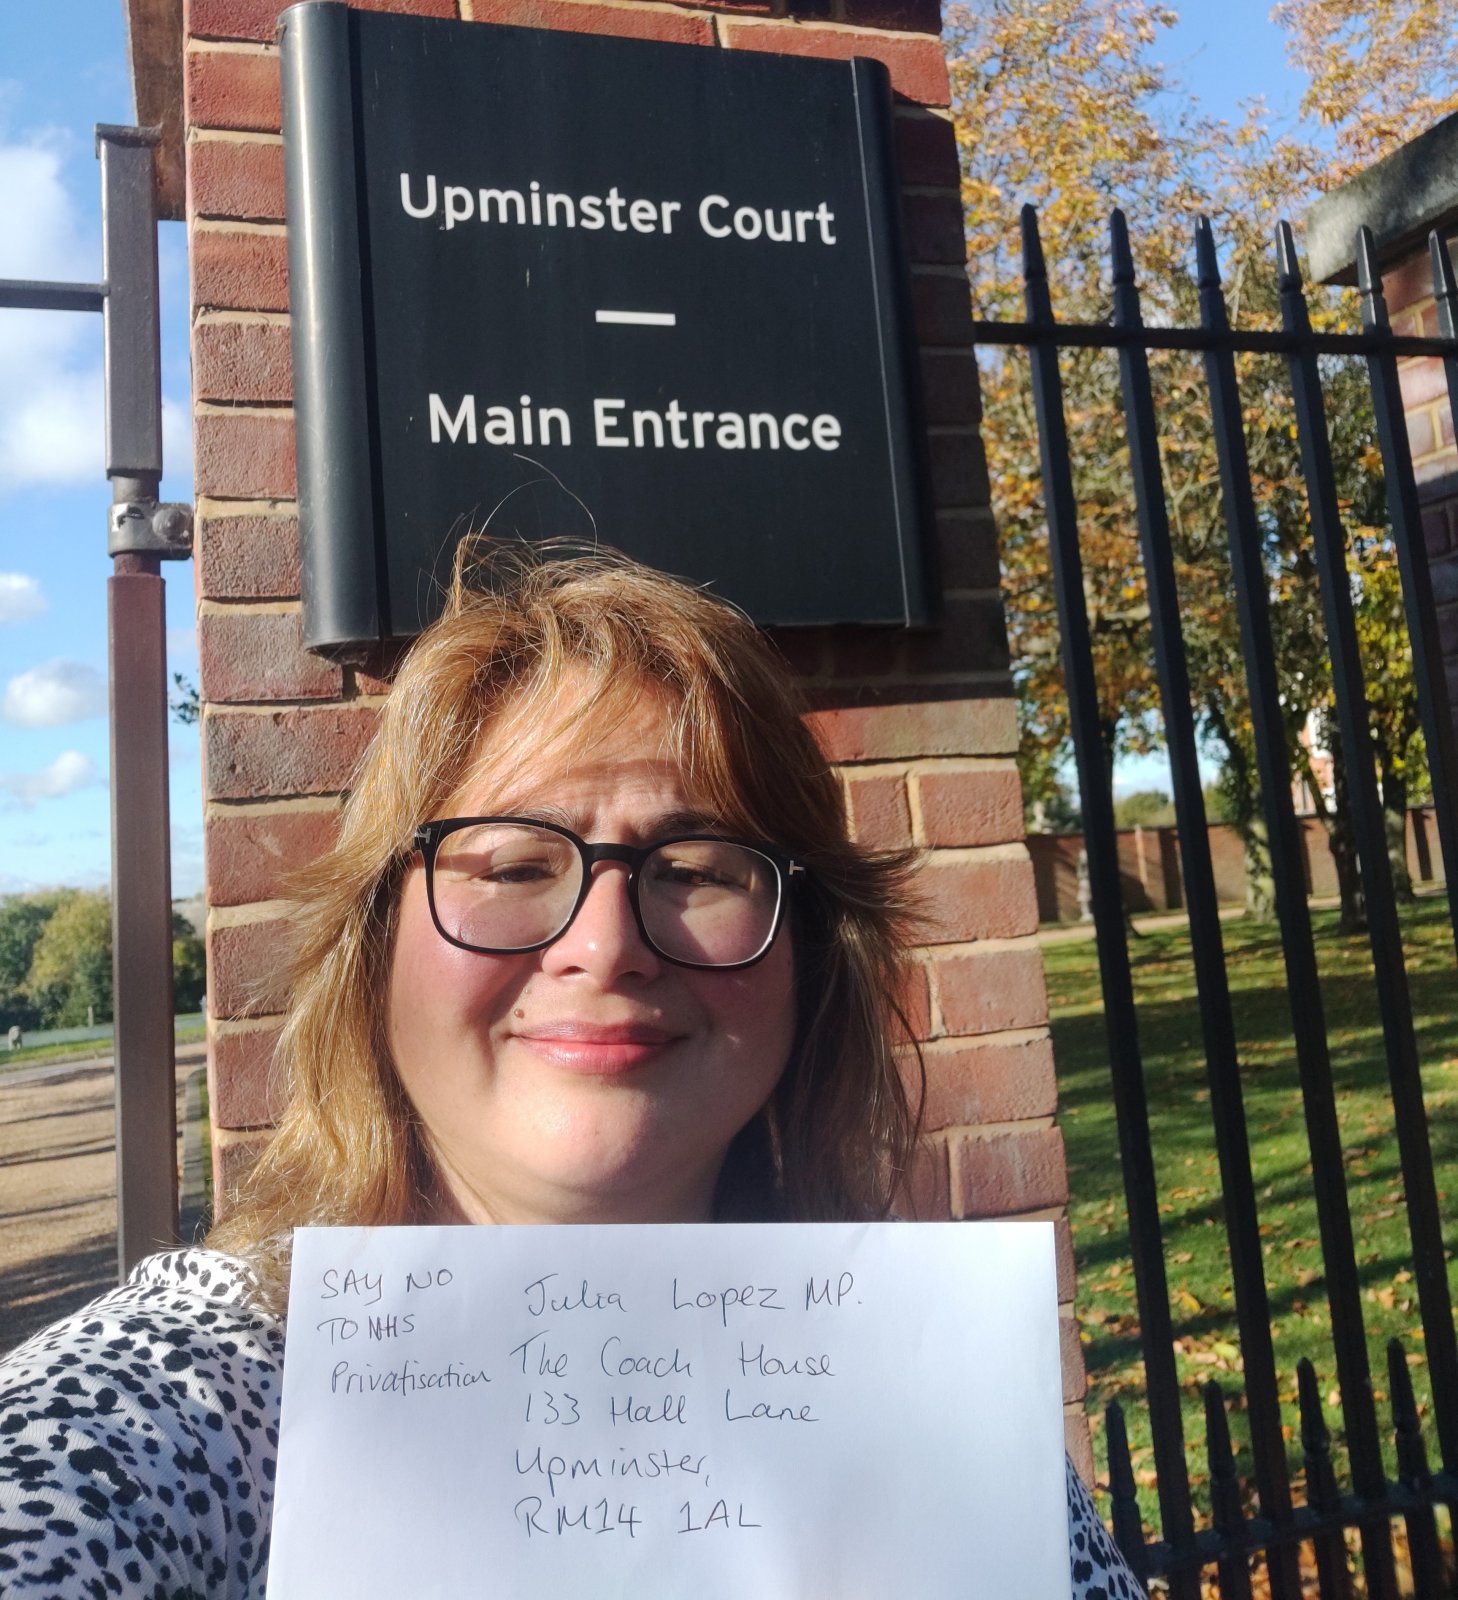 Upminster Court
Main Entrance
SAY NO
TO NHS
Privatisation
Julia Lopez MP.
The Coach House
133 Hall Lane
Upminster,
RM14 1AL